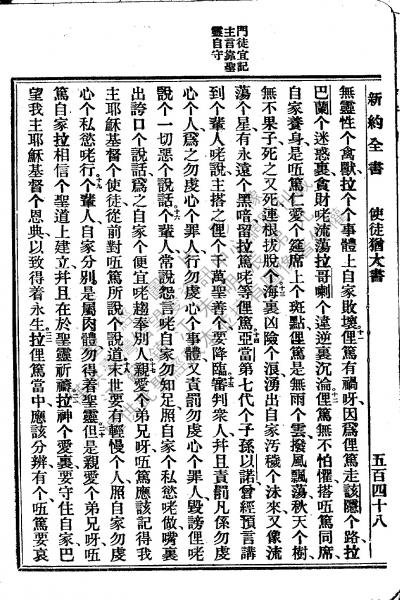 門徒宜記
主言靠聖
靈自守
新約全書 使徒猶太書 五百四十八
無靈性个禽獸拉个个事體上自家敗壞、俚篤有禍呀、因爲俚篤走該隱个路、拉
巴蘭个迷惑裏、貪財咾流蕩、拉哥喇个違逆裏沉淪、俚篤無不怕懼、搭伍篤同席、
自家養身、是伍篤仁愛个筵席上个斑點、俚篤是無雨个雲、撥風飄蕩、秋天个樹、
無不果子、死之又死、連根拔脫个、海裏凶險个浪、湧出自家汚穢个沫來、又像流
蕩个星、有永遠个黑暗、留拉篤咾等俚篤、亞當第七代个子孫以諾、曾經預言講
到个輩人咾說、主搭之俚个千萬聖善个、要降臨、審判衆人、幷且責罰凡係勿虔
心个人、爲之勿虔心个罪人、行勿虔心个事體、又責罰勿虔心个罪人、毀謗俚咾
說个一切惡个說話、个輩人常說怨言咾自家勿知足、照自家个私慾咾做、嘴裏
出誇口个說話、爲之自家个便宜咾趨奉別人、親愛个弟兄呀、伍篤應該記得我
主耶穌基督个使徒、從前對伍篤所說个、說道、末世要有輕慢个人、照自家勿虔
心个私慾咾行、个輩人自家分別、是屬肉體、勿得着聖靈、但是親愛个弟兄呀、伍
篤自家拉相信个聖道上建立、幷且在於聖靈祈禱、拉神个愛裏、要守住自家、巴
望我主耶穌基督个恩典、以致得着永生、拉俚篤當中、應該分辨、有个、伍篤要哀